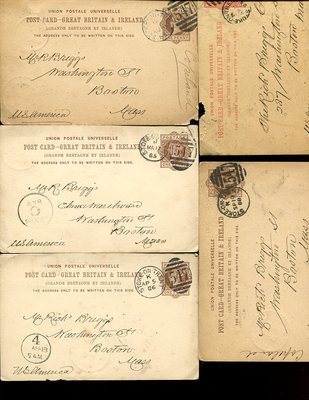 UNION POSTALE UNIVERSELLE
POST CARD-GREAT BRITAIN & IRELAND
(GRANDE BRETAGNE ET IRLANDE)
THE ADDRESS ONLY TO BE WRITTEN ON THIS SIDE.
Mr R Briggs
Washington St
Boston
Mass
US America
UNION POSTALE UNIVERSELLE
POST CARD-GREAT BRITAIN & IRELAND
(GRANDE BRETAGNE ET IRLANDE)
THE ADDRESS ONLY TO BE WRITTEN ON THIS SIDE.
Mr R Briggs
Washington St
Boston
Mass
US America
UNION POSTALE UNIVERSELLE
POST CARD-GREAT BRITAIN & IRELAND
(GRANDE BRETAGNE ET IRLANDE)
THE ADDRESS ONLY TO BE WRITTEN ON THIS SIDE.
Mr Rich Briggs
Washington St
Boston
Mass
US America
4
UNION POSTALE UNIVERSELLE
POST CARD-GREAT BRITAIN & IRELAND
(GRANDE BRETAGNE ET IRLANDE)
THE ADDRESS ONLY TO BE WRITTEN ON THIS SIDE.
287 Washington
Boston
UNION POSTALE UNIVERSELLE
POST CARD-GREAT BRITAIN & IRELAND
(GRANDE BRETAGNE ET IRLANDE)
THE ADDRESS ONLY TO BE WRITTEN ON THIS SIDE.
Mr Rich Briggs
Washington St
Boston
Mass